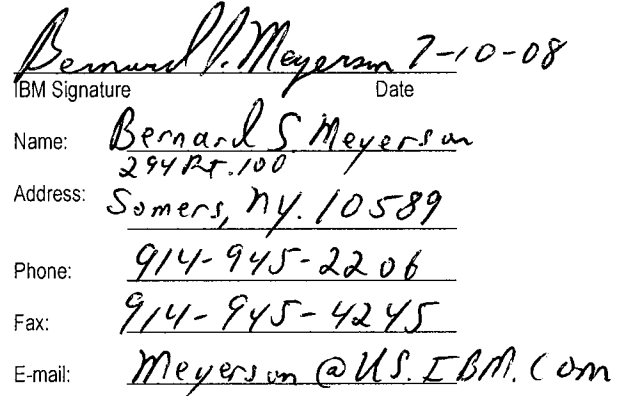 Bernard S. Meyerson 7-10-08
IBM Signature Date
Name: Bernard S. Meyerson
294 Rt. 100
Address: Somers, NY. 10589
Phone: 914-945-2206
Fax: 914-945-4245
E-mail: Meyerson@US.IBM.Com